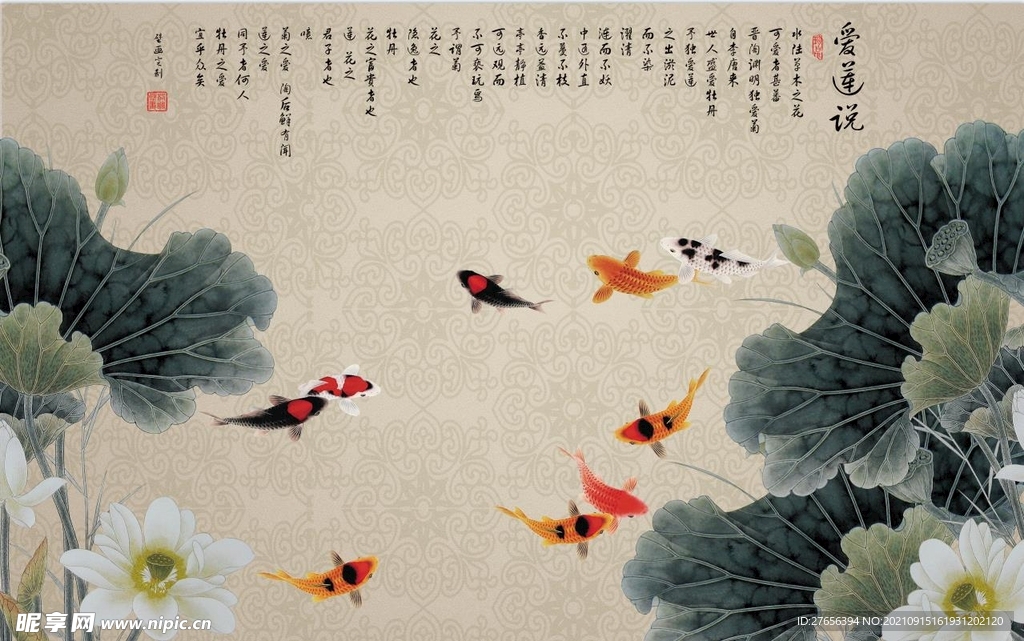 爱莲说
水陆草木之花
可爱者甚蕃
晋陶渊明独爱菊
自李唐来
世人盛爱牡丹
予独爱莲
之出淤泥
而不染
濯清
涟而不妖
中通外直
不蔓不枝
香远益清
亭亭静植
可远观而
不可亵玩焉
予谓菊
花之
隐逸者也
牡丹
花之富贵者也
莲 花之
君子者也
噫
菊之爱 陶后鲜有闻
莲之爱
同予者何人
牡丹之爱
宜乎众矣
昵享网 www.nipic.cn
ID:27656394 NO:20210915161931202120